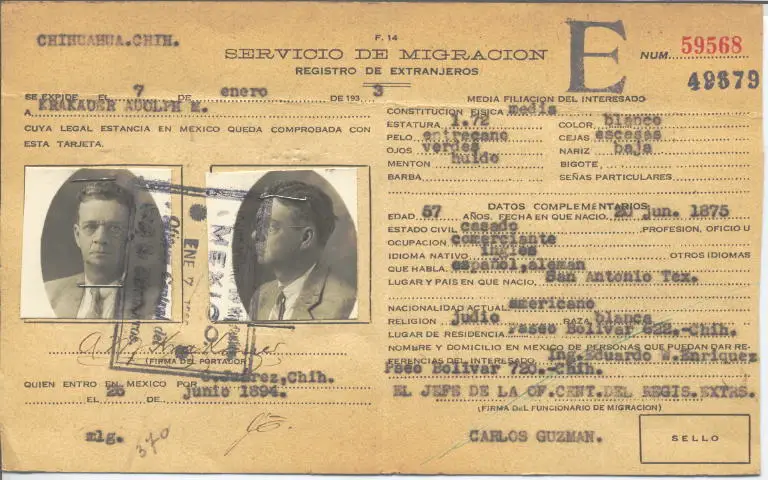 CHIHUAHUA.CHIH.
F. 14
SERVICIO DE MIGRACION
REGISTRO DE EXTRANJEROS
E
NUM. 59568
49679
SE EXPIDE EL 7 DE enero DE 193 3
A KRAKAUER ADOLPH E.
CUYA LEGAL ESTANCIA EN MEXICO QUEDA COMPROBADA CON
ESTA TARJETA.
MEXICO.
ENE 7
(FIRMA DEL PORTADOR)
QUIEN ENTRO EN MEXICO POR Juarez,Chih.
EL 26 DE junio 1894.
mlg.
370
MEDIA FILIACION DEL INTERESADO
CONSTITUCION FISICA media
ESTATURA 1.72 COLOR blanco
PELO entrecano CEJAS escasas
OJOS verdes NARIZ baja
MENTON huido BIGOTE
BARBA SEÑAS PARTICULARES
DATOS COMPLEMENTARIOS
EDAD 57 AÑOS. FECHA EN QUE NACIO, 20 Jun. 1875
ESTADO CIVIL casado PROFESION, OFICIO U
OCUPACION comerciante
IDIOMA NATIVO ingles OTROS IDIOMAS
QUE HABLA, español,aleman
LUGAR Y PAIS EN QUE NACIO, San Antonio Tex.
NACIONALIDAD ACTUAL americano
RELIGION judio RAZA blanca
LUGAR DE RESIDENCIA Paseo Bolivar 622.-Chih.
NOMBRE Y DOMICILIO EN MEXICO DE PERSONAS QUE PUEDAN DAR RE-
FERENCIAS DEL INTERESADO Ing.Eduardo W.Enriquez
Pseo Bolivar 720.-Chih.
EL JEFE DE LA OF.CENT.DEL REGIS.EXTRS.
(FIRMA DEL FUNCIONARIO DE MIGRACION)
CARLOS GUZMAN.
SELLO